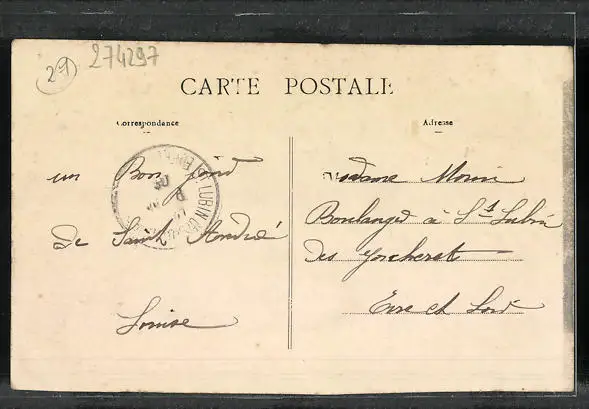 29
274297
CARTE POSTALE
Correspondance
Adresse
un Bon
de Saint André
Louise
Madame Morin
Boulanger à St Lubin
des Joncherets
Eure et Loir
LUBIN